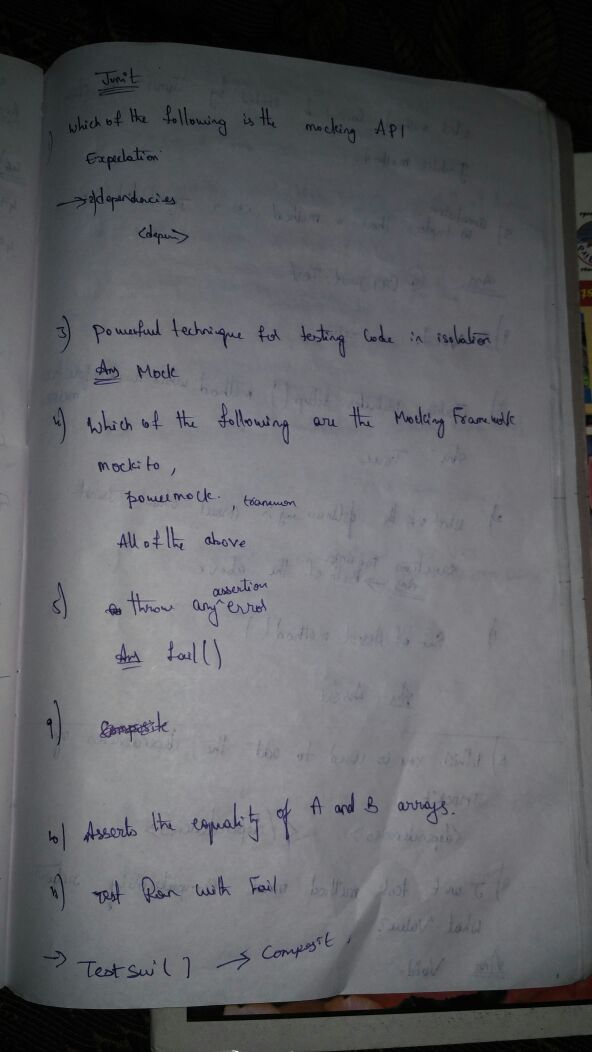 Junit
1) which of the following is the mocking API
Expectation
→ 2) dependencies
<depen>
3) powerful technique for testing code in isolation
Ans Mock
4) Which of the following are the Mocking Framework
mockito,
powermock,
All of the above
5) throw any assertion error
Ans fail()
9) composite
10) Asserts the equality of A and B arrays.
11) Test Ran with Fail
→ Test Sui( ) → Composit,